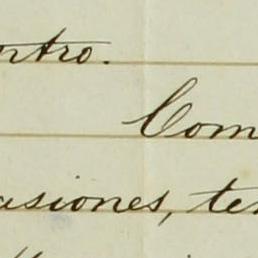 ntro.
Com
asiones, te